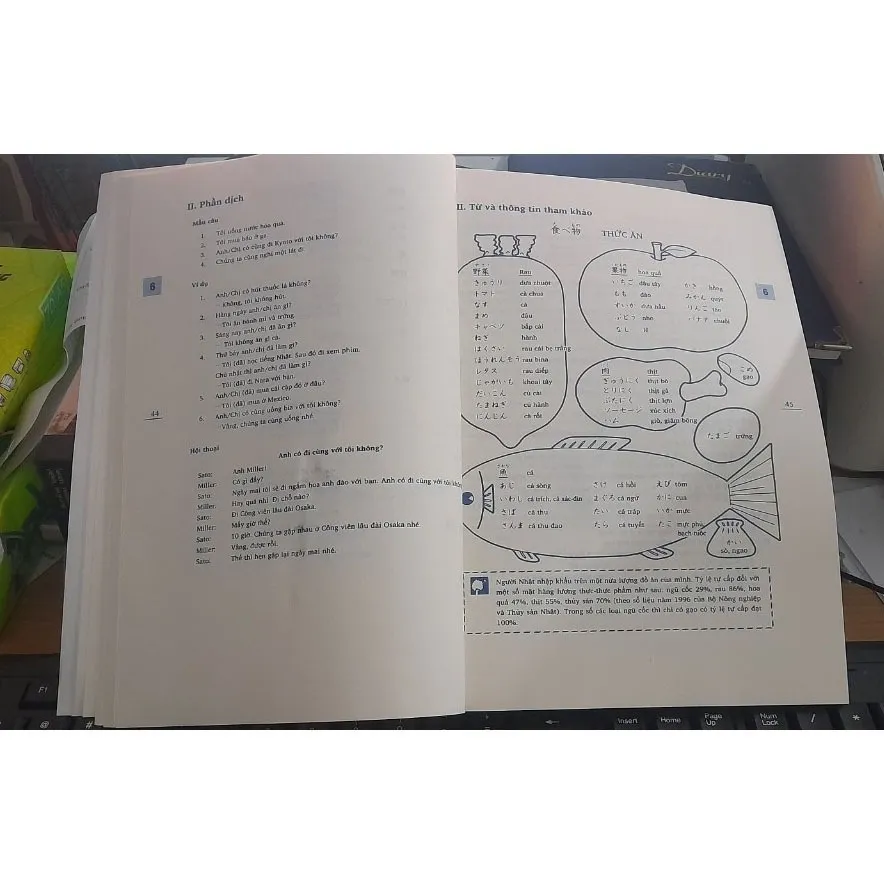 II. Phần dịch
Mẫu câu
1. Tôi uống nước hoa quả.
2. Tôi mua báo ở ga.
3. Anh/Chị có cùng đi Kyoto với tôi không?
4. Chúng ta cùng nghỉ một lát đi
6
Ví dụ
1. Anh/Chị có hút thuốc lá không?
- Không, tôi không hút.
2. Hàng ngày anh/chị ăn gì?
- Tôi ăn bánh mì và trứng.
3. Sáng nay anh/chị đã ăn gì?
- Tôi không ăn gì cả.
4. Thứ bảy anh/chị đã làm gì?
- Tôi (đã) học tiếng Nhật. Sau đó đi xem phim.
Chủ nhật thì anh/chị đã làm gì?
- Tôi (đã) đi Nara với bạn.
5. Anh/Chị (đã) mua cái cặp đó ở đâu?
- Tôi (đã) mua ở Mexico.
6. Anh/Chị có cùng uống bia với tôi không?
- Vâng, chúng ta cùng uống nhé.
44
Hội thoại
Anh có đi cùng với tôi không?
Sato: Anh Miller!
Miller: Có gì đấy?
Sato: Ngày mai tôi sẽ đi ngắm hoa anh đào với bạn. Anh có đi cùng với tôi không
Miller: Hay quá nhỉ. Đi chỗ nào?
Sato: Đi Công viên lâu đài Osaka.
Miller: Mấy giờ thế?
Sato: 10 giờ. Chúng ta gặp nhau ở Công viên lâu đài Osaka nhé.
Miller: Vâng, được rồi.
Sato: Thế thì hẹn gặp lại ngày mai nhé.
II. Từ và thông tin tham khảo
食べ物 THỨC ĂN
野菜 Rau
きゅうり dưa chuột
トマト cà chua
なす cà
まめ đậu
キャベツ bắp cải
ねぎ hành
はくさい rau cải bẹ trắng
ほうれんそう rau bina
レタス rau diếp
じゃがいも khoai tây
だいこん củ cải
たまねぎ củ hành
にんじん cà rốt
果物 hoa quả
いちご dâu tây かき hồng
もも đào みかん quýt
すいか dưa hấu りんご táo
ぶどう nho バナナ chuối
なし lê
6
肉 thịt
ぎゅうにく thịt bò
とりにく thịt gà
ぶたにく thịt lợn
ソーセージ xúc xích
ハム giò, giăm bông
こめ
gạo
45
たまご trứng
魚 cá
あじ cá sòng さけ cá hồi えび tôm
いわし cá trích, cá sác-đin まぐろ cá ngừ かに cua
さば cá thu たい cá tráp いか mực
さんま cá thu đao たら cá tuyết たこ mực phủ,
bạch tuộc
かい
sò, ngao
Người Nhật nhập khẩu trên một nửa lượng đồ ăn của mình. Tỷ lệ tự cấp đối với
một số mặt hàng lương thực-thực phẩm như sau: ngũ cốc 29%, rau 86%, hoa
quả 47%, thịt 55%, thủy sản 70% (theo số liệu năm 1996 của Bộ Nông nghiệp
và Thủy sản Nhật). Trong số các loại ngũ cốc thì chỉ có gạo có tỷ lệ tự cấp đạt
100%.
Diary
F1
@
#
Insert
Home
Page
Up
Num
Lock
/
*